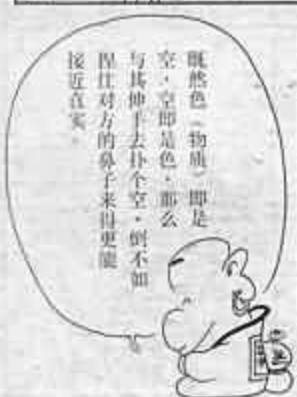 既然色（物质）即是
空，空即是色，那么
与其伸手去扑个空，倒不如
捏住对方的鼻子来得更能
接近真实。